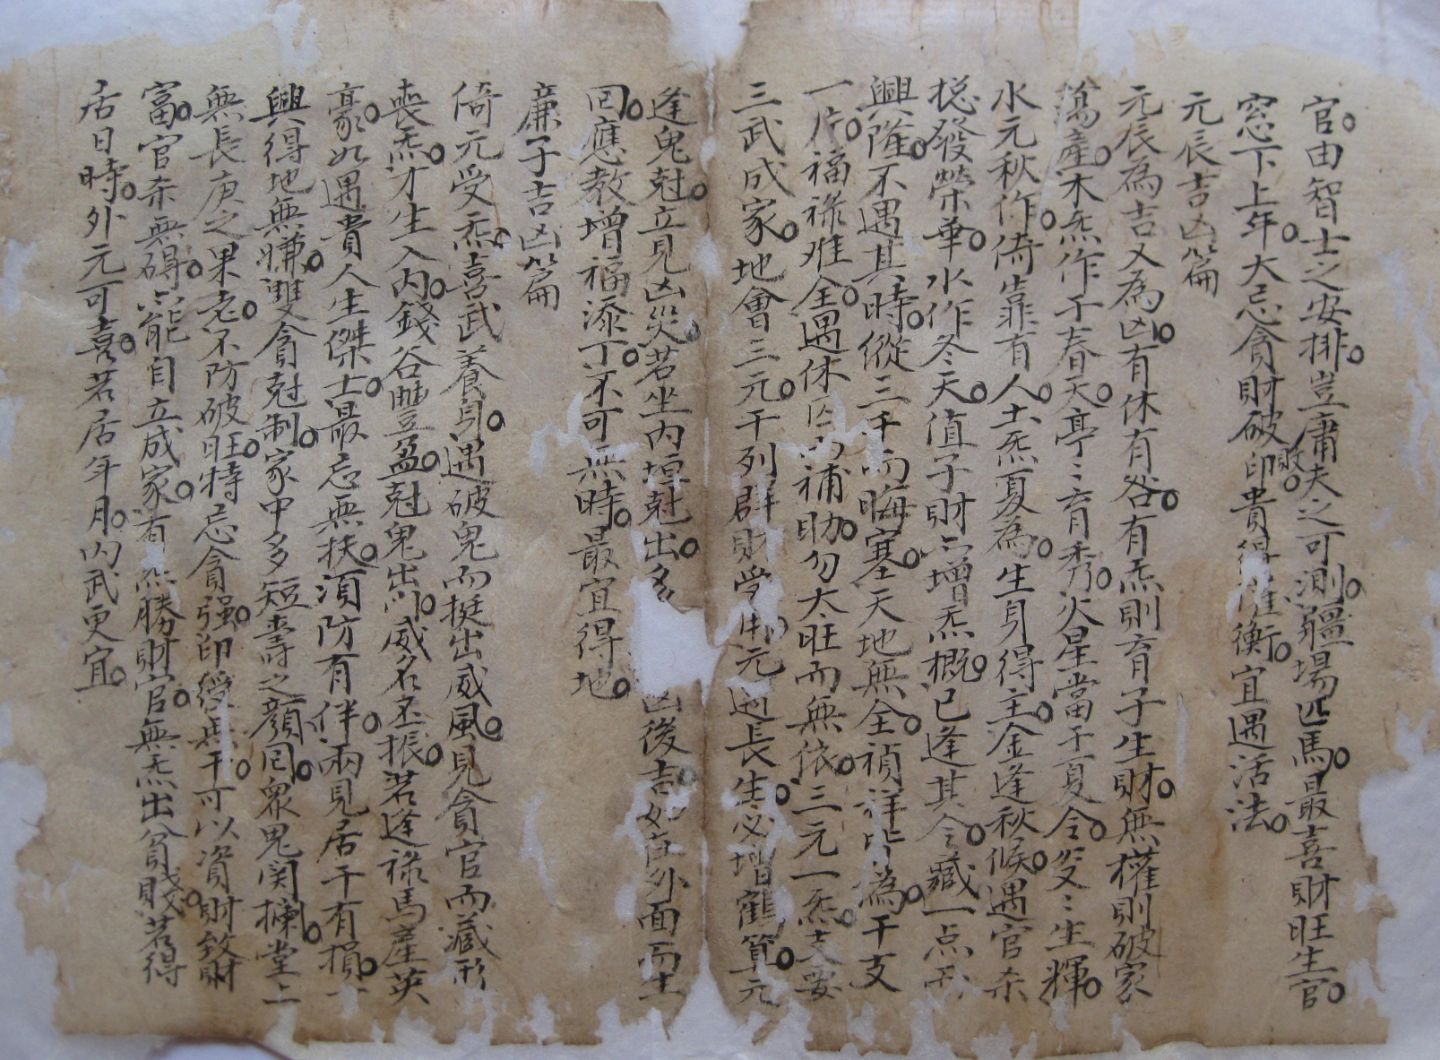 官由智士之安排豈庸夫之可測疆場匹馬最喜財旺生官
窓下上年大忌貪財破印貴得 衡宜遇活法
敗
元辰吉凶篇
元辰為吉又為凶有休有咎有炁則育子生財無權則破家
蕩產木炁作于春天亭〻育秀火星當于夏令 〻生輝
水元秋作倚靠有人土炁夏為生身得主金逢秋候遇官杀
捴發榮華水作冬天值子財六增炁概已逢其令藏一点
興隆不遇其時縱三千而晦塞天地無全禎祥 為干支
一片福祿难全遇休 補助勿太旺而無依三元一炁支要
三武成家地會三元干列群財受 元 長生必增寉算元
逢鬼尅立見凶災若坐內垣尅出多 凶後吉 外面而主
回應教增福添丁不可無時最宜得地
廉子吉凶篇
倚元受炁喜武養身遇破鬼而挺出威風見貪官而藏形
喪炁才生入內錢谷豐盈尅鬼出 威名丕振若逢祿馬產英
豪如遇貴人生傑士最忌無扶須防有伴兩見居干有損
興得地無嫌雙貪尅制家中多短壽之顏囙眾鬼関 堂上
無長庚之果老不防破旺特忌貪强印綬無干可以資財致財
富官杀無碍六能自立成家有 勝財官無炁出貧賤若得
居日時外元可喜若居年月內武更宜